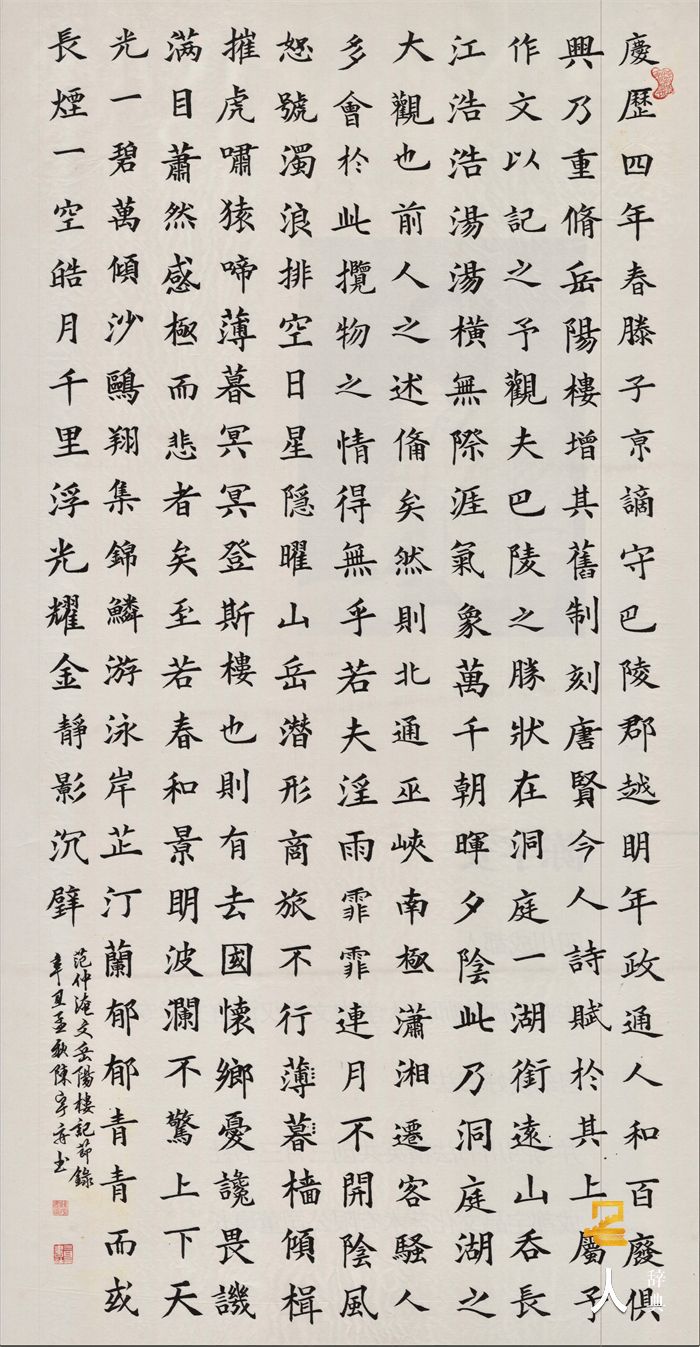 慶歷四年春滕子京謫守巴陵郡越明年政通人和百廢俱
興乃重脩岳陽樓增其舊制刻唐賢今人詩賦於其上屬予
作文以記之予觀夫巴陵之勝狀在洞庭一湖銜遠山吞長
江浩浩湯湯橫無際涯氣象萬千朝暉夕陰此乃洞庭湖之
大觀也前人之述俻矣然則北通巫峽南極瀟湘遷客騷人
多會於此攬物之情得無乎若夫淫雨霏霏連月不開陰風
怒號濁浪排空日星隱曜山岳潛形商旅不行薄暮檣傾楫
摧虎嘯猿啼薄暮冥冥登斯樓也則有去國懷鄉憂讒畏譏
满目蕭然感極而悲者矣至若春和景明波瀾不驚上下天
光一碧萬傾沙鷗翔集錦鱗游泳岸芷汀蘭郁郁青青而或
長煙一空皓月千里浮光耀金靜影沉璧
范仲淹文岳陽樓記節錄
辛丑孟秋陳宇书
人
辞典